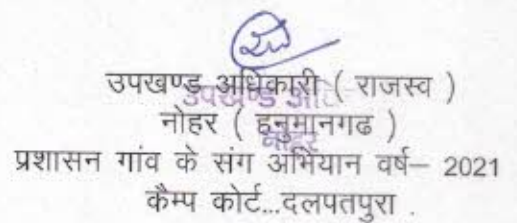 उपखण्ड अधिकारी ( राजस्व )
नोहर ( हनुमानगढ )
प्रशासन गांव के संग अभियान वर्ष– 2021
कैम्प कोर्ट...दलपतपुरा .